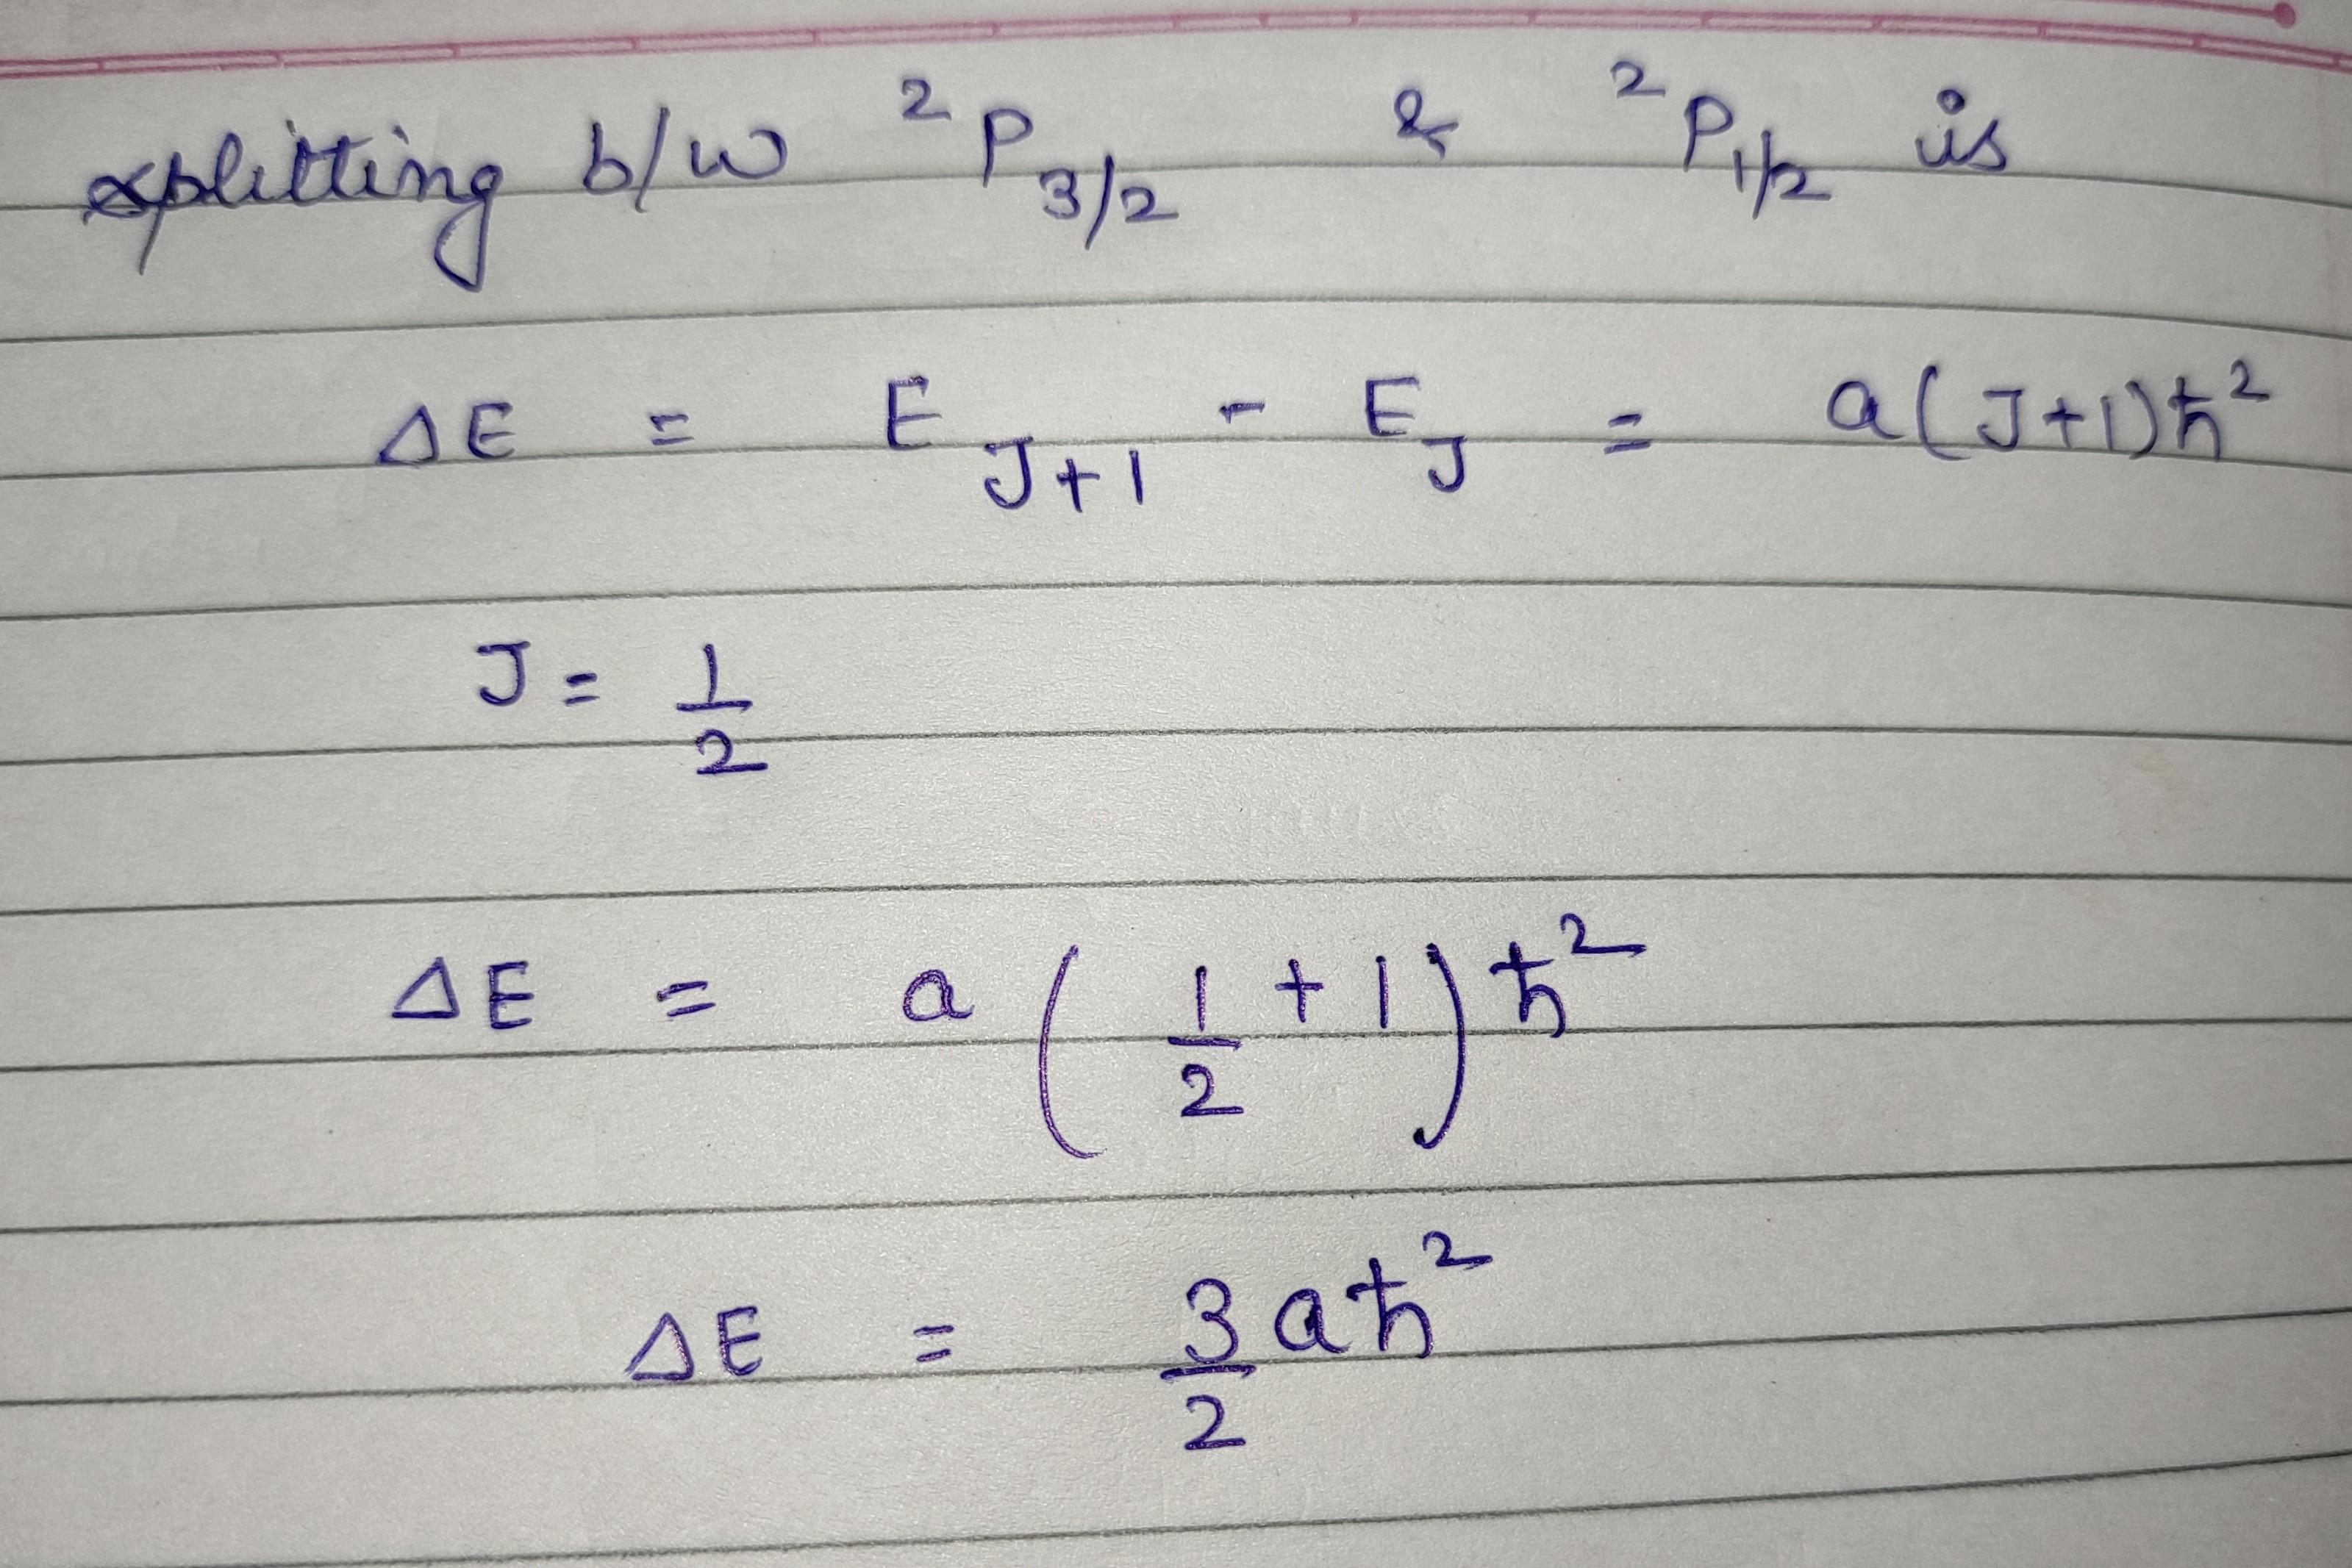 splitting b/w ²P₃/₂ & ²P₁/₂ is
ΔE = E_{J+1} - E_J = a(J+1)ħ²
J = 1/2
ΔE = a(1/2 + 1)ħ²
ΔE = 3/2 aħ²